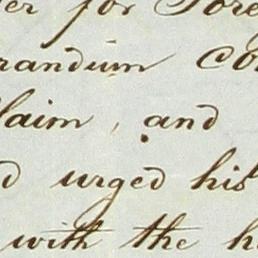 er for Fore
randum co
laim, and
d urged his
with the h